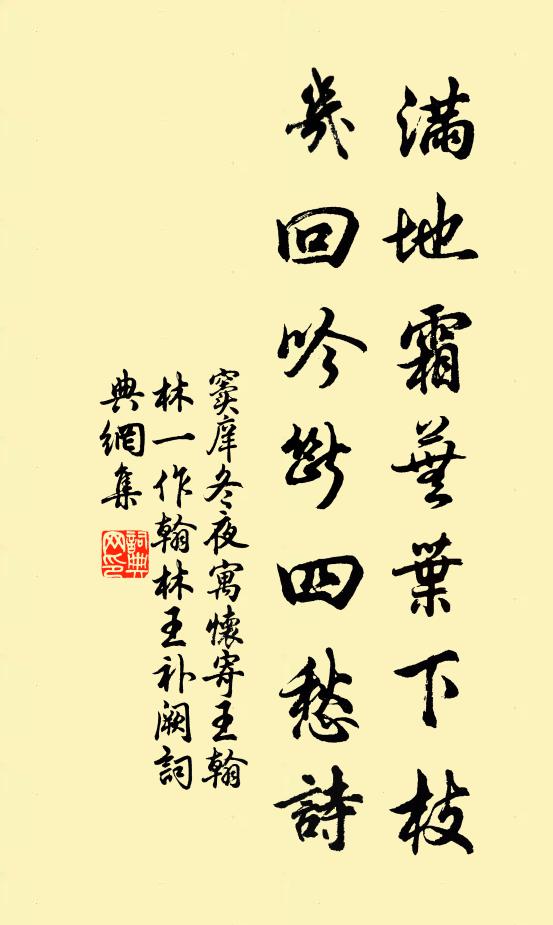 滿地霜蕪葉下枝
幾回吟斷四愁詩
竇庠冬夜寓懷寄王翰
林一作翰林王补阙詞
典網集
詞典網印